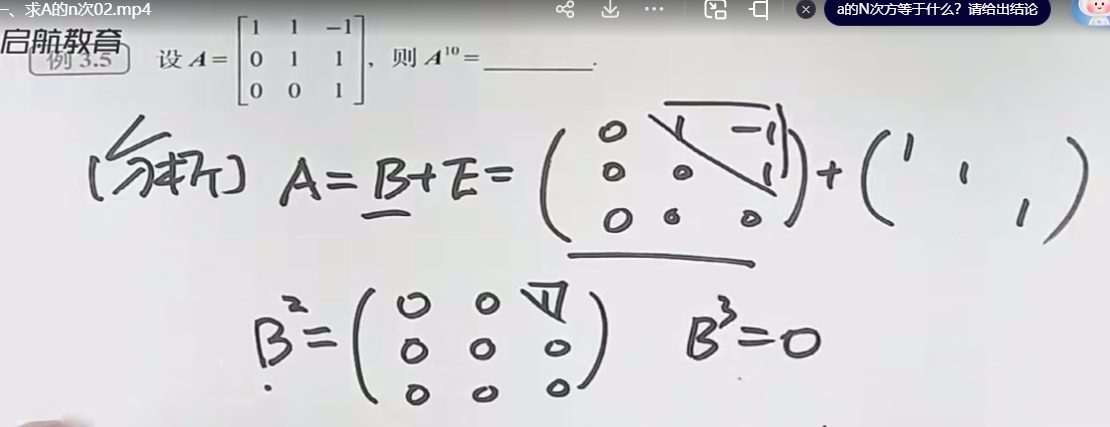 一、求A的n次02.mp4
a的N次方等于什么？请给出结论
启航教育
例 3.5 设 A = [1 1 -1; 0 1 1; 0 0 1], 则 A¹⁰ = ________.
[分析] A = B + E = (0 1 -1; 0 0 1; 0 0 0) + (1 1 1)
B² = (0 0 1; 0 0 0; 0 0 0) B³ = 0